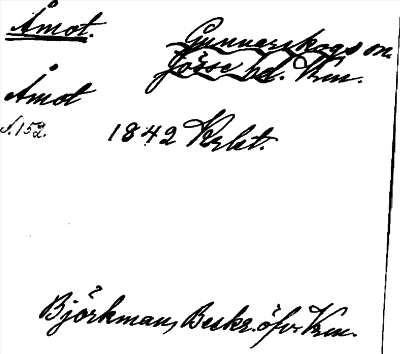 Åmot.
Gunnarskogs sn.
Jösse hd. Vrm.
Åmot
S. 152.
1842 Krbt.
Björkman, Beskr. öfv. Vrm.